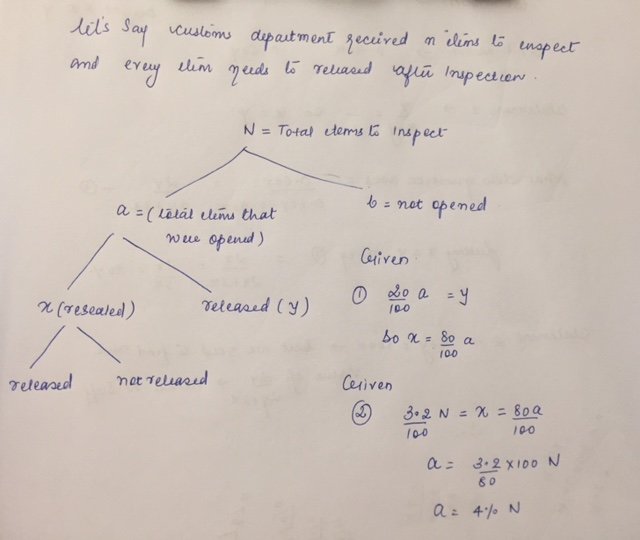 let's say customs department received n items to inspect
and every item needs to released after inspection.
N = Total items to inspect
a = (total items that
were opened)
b = not opened
x (resealed)
released (y)
released
not released
Given
① 20/100 a = y
so x = 80/100 a
Given
② 3.2/100 N = x = 80a/100
a = 3.2/80 × 100 N
a = 4% N